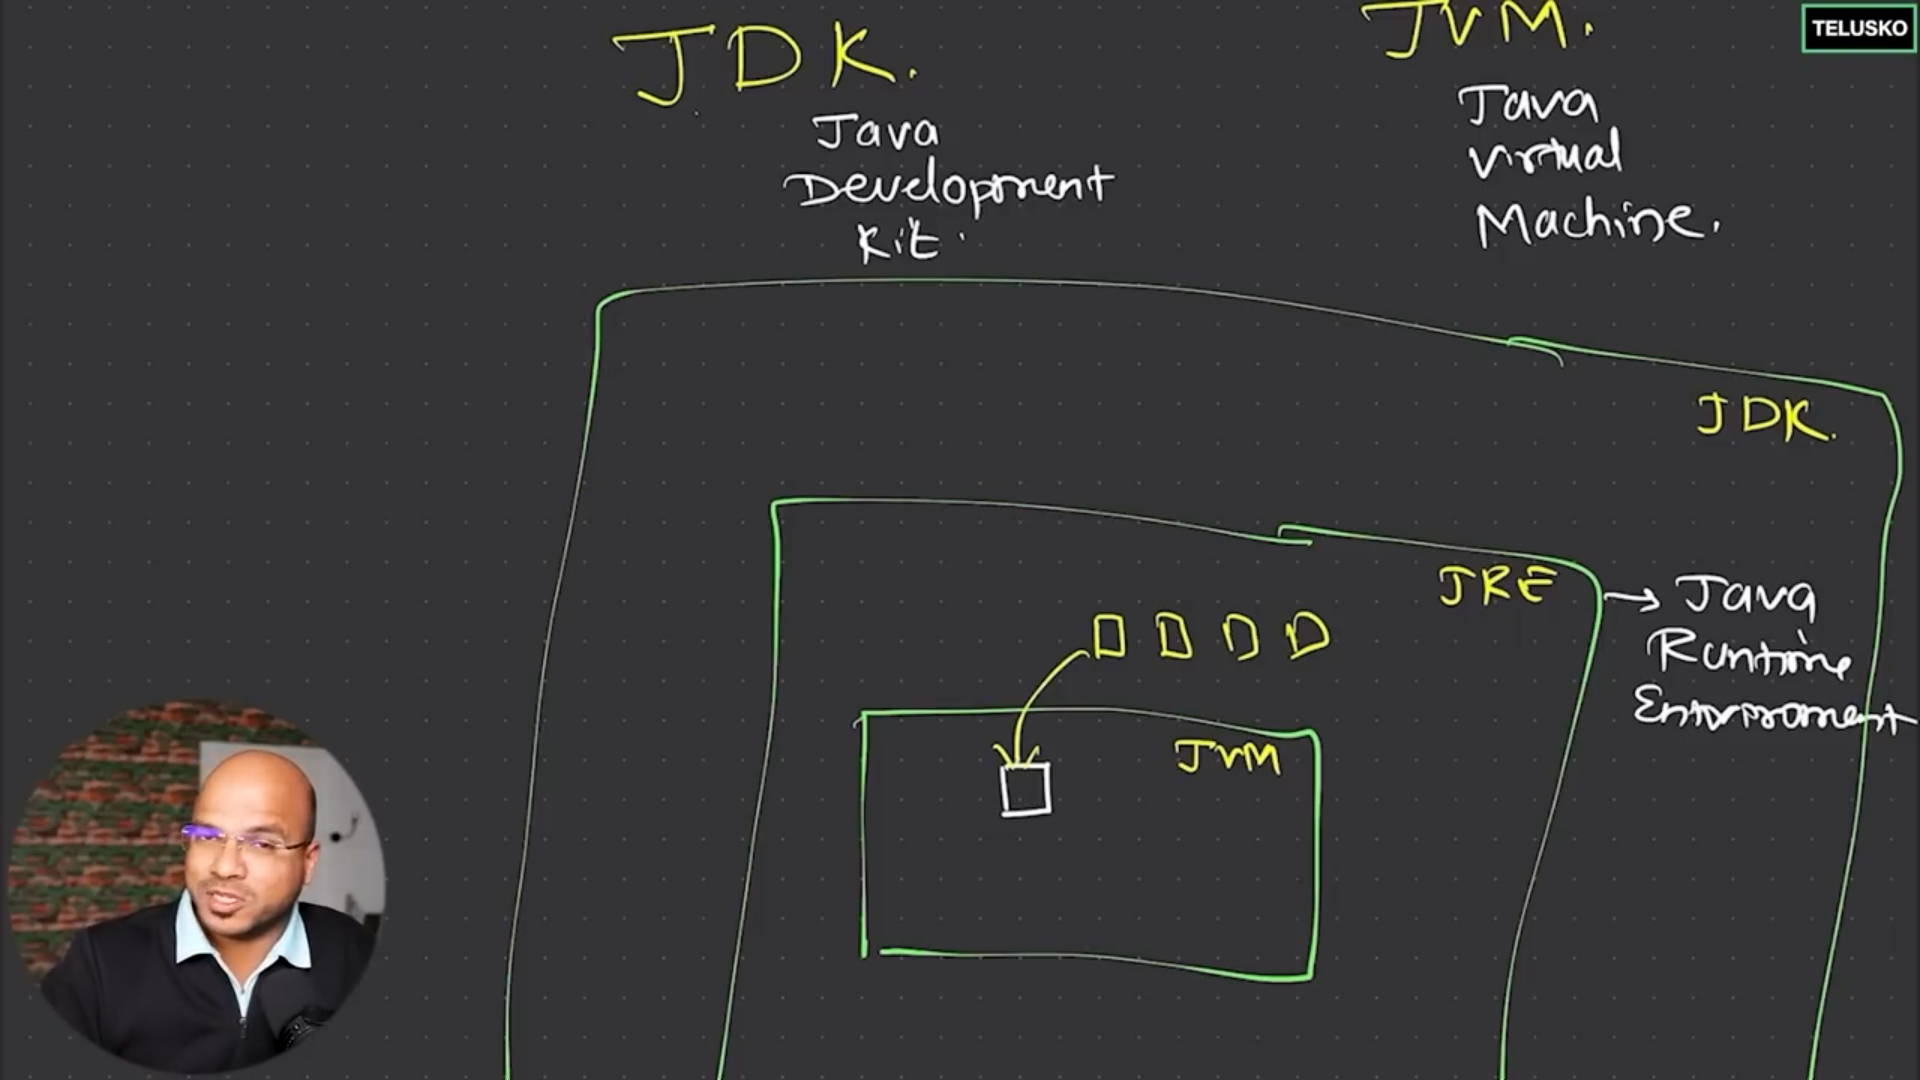 JDK.
Java
Development
Kit.
JVM.
Java
Virtual
Machine.
TELUSKO
JDK.
JRE
Java
Runtime
JVM